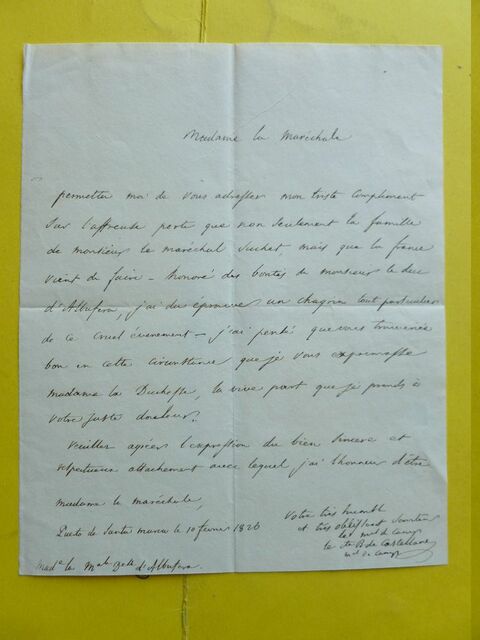 Madame la Maréchale
permettez moi de vous adresser mon triste compliment
sur l'affreuse perte que non seulement la famille
de monsieur le maréchal Suchet, mais que la france
vient de faire – honoré des bontés de monsieur le duc
d'Albufera, j'ai du éprouver un chagrin tout particulier
de ce cruel événement – j'ai pensé que vous trouveriez
bon en cette circonstance que je vous exprimasse
madame la Duchesse, la vive part que je prends à
votre juste douleur.
Veuillez agréer l'expression du bien sincere et
respectueux attachement avec lequel j'ai l'honneur d'être
madame la maréchale,
Votre très humble
et très obéissant serviteur
le mal de camp
Puerto de Santa maria le 10 fevrier 1826
le B de Castellane
mal de camp
Made la Male d'Albufera